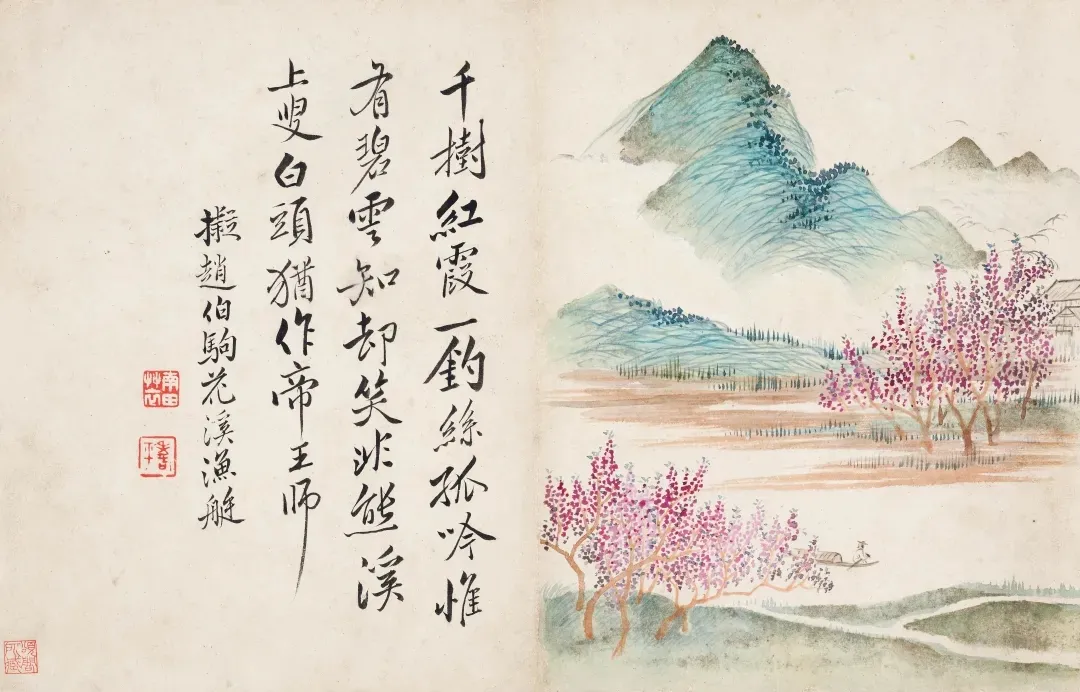 千樹紅霞一釣絲孤吟惟
有碧雲知却笑非熊溪
上叟白頭猶作帝王師
擬趙伯駒花溪漁艇
南田艸衣